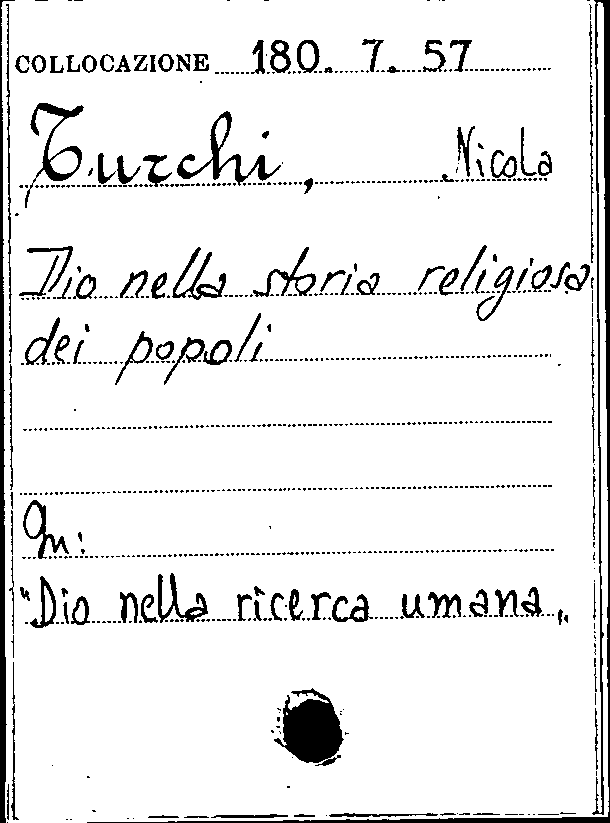 COLLOCAZIONE 180. 7. 57
Turchi, Nicola
Dio nella storia religiosa
dei popoli
In:
"Dio nella ricerca umana„